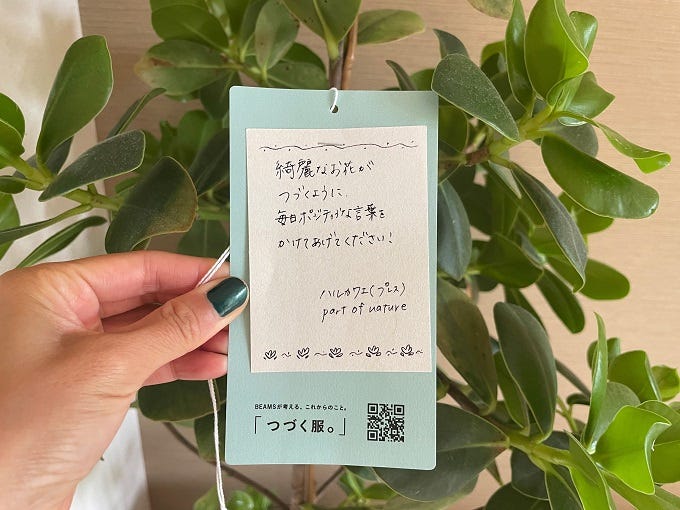 綺麗なお花が
つづくように
毎日ポジティブな言葉を
かけてあげてください!
ハルカワエ(プレス)
part of nature
BEAMSが考える、これからのこと。
「つづく服。」